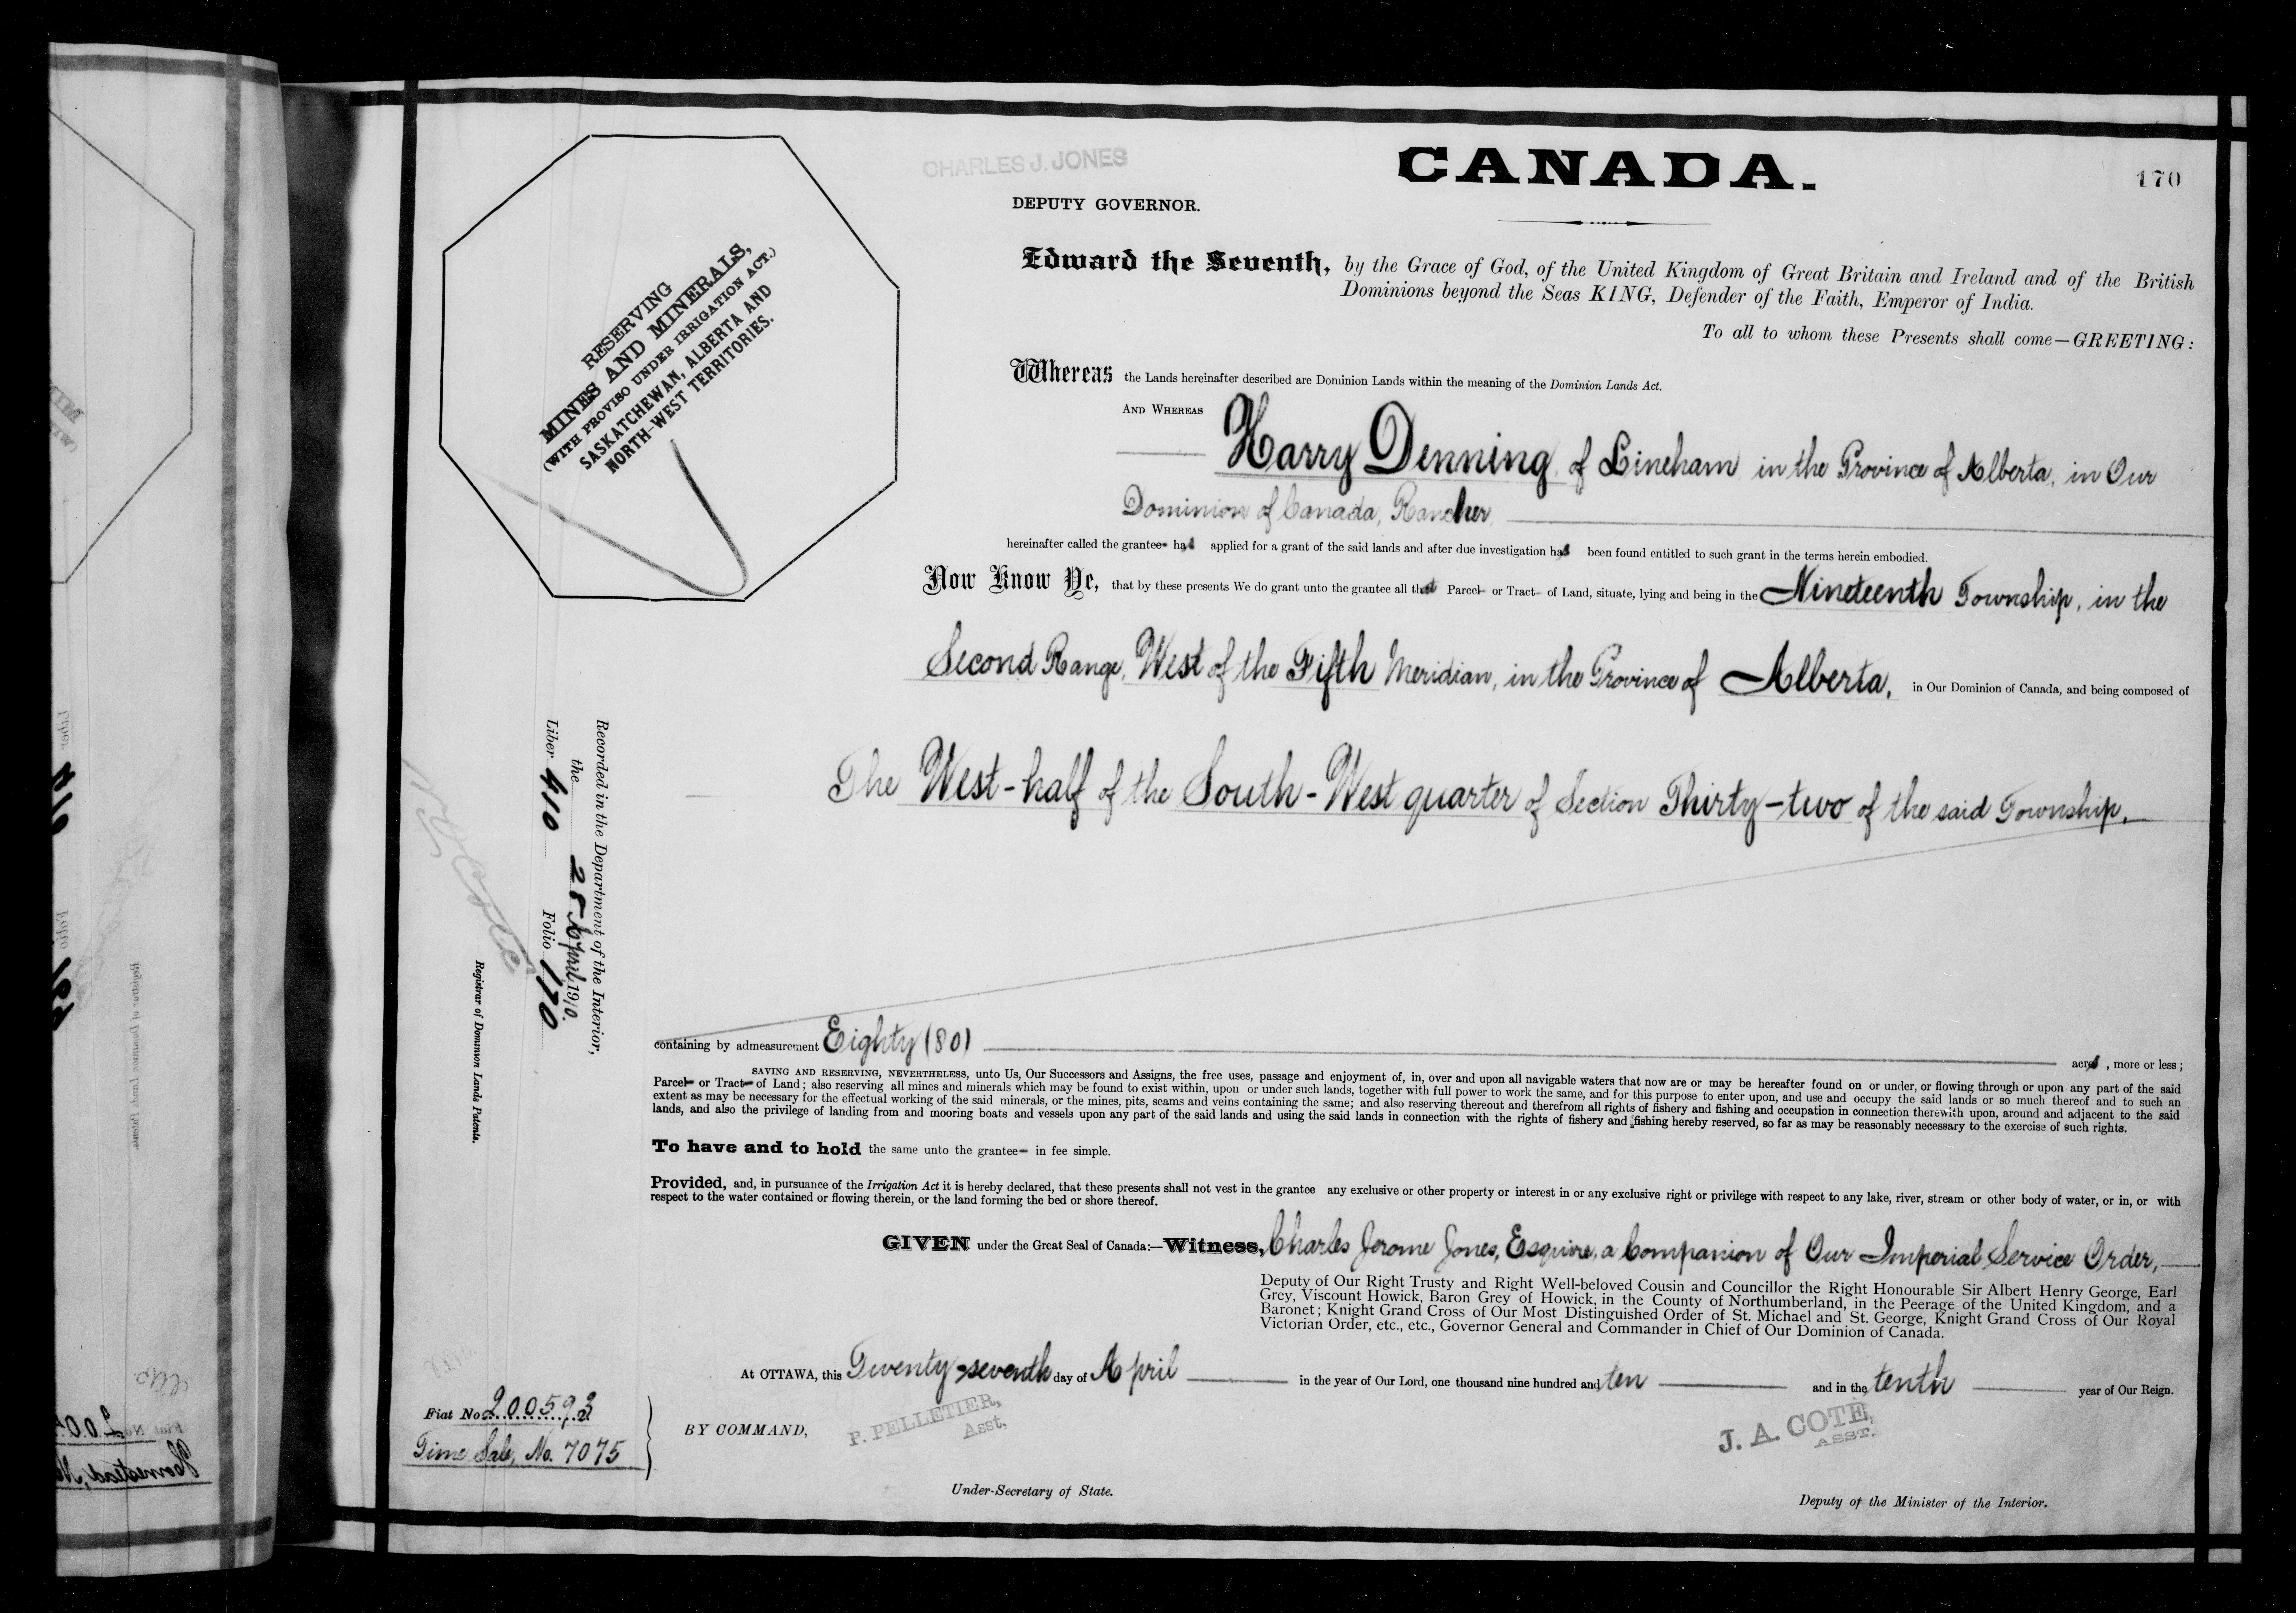 CHARLES J. JONES
DEPUTY GOVERNOR.
CANADA.
170
RESERVING
MINES AND MINERALS,
(WITH PROVISO UNDER IRRIGATION ACT.)
SASKATCHEWAN, ALBERTA AND
NORTH-WEST TERRITORIES.
Edward the Seventh, by the Grace of God, of the United Kingdom of Great Britain and Ireland and of the British
Dominions beyond the Seas KING, Defender of the Faith, Emperor of India.
To all to whom these Presents shall come—GREETING:
Whereas the Lands hereinafter described are Dominion Lands within the meaning of the Dominion Lands Act.
AND WHEREAS
Harry Denning, of Lineham, in the Province of Alberta, in Our
Dominion of Canada, Rancher,
hereinafter called the grantee has applied for a grant of the said lands and after due investigation has been found entitled to such grant in the terms herein embodied.
Now Know Ye, that by these presents We do grant unto the grantee all that Parcel or Tract of Land, situate, lying and being in the Nineteenth Township, in the
Second Range, West of the Fifth Meridian, in the Province of Alberta, in Our Dominion of Canada, and being composed of
The West-half of the South-West quarter of Section Thirty-two of the said Township.
containing by admeasurement Eighty (80) acres, more or less;
SAVING AND RESERVING, NEVERTHELESS, unto Us, Our Successors and Assigns, the free uses, passage and enjoyment of, in, over and upon all navigable waters that now are or may be hereafter found on or under, or flowing through or upon any part of the said
Parcel or Tract of Land; also reserving all mines and minerals which may be found to exist within, upon or under such lands, together with full power to work the same, and for this purpose to enter upon, and use and occupy the said lands or so much thereof and to such an
extent as may be necessary for the effectual working of the said minerals, or the mines, pits, seams and veins containing the same; and also reserving thereout and therefrom all rights of fishery and fishing and occupation in connection therewith upon, around and adjacent to the said
lands, and also the privilege of landing from and mooring boats and vessels upon any part of the said lands and using the said lands in connection with the rights of fishery and fishing hereby reserved, so far as may be reasonably necessary to the exercise of such rights.
To have and to hold the same unto the grantee in fee simple.
Provided, and, in pursuance of the Irrigation Act it is hereby declared, that these presents shall not vest in the grantee any exclusive or other property or interest in or any exclusive right or privilege with respect to any lake, river, stream or other body of water, or in, or with
respect to the water contained or flowing therein, or the land forming the bed or shore thereof.
GIVEN under the Great Seal of Canada:—Witness, Charles Jerome Jones, Esquire, a Companion of Our Imperial Service Order,
Deputy of Our Right Trusty and Right Well-beloved Cousin and Councillor the Right Honourable Sir Albert Henry George, Earl
Grey, Viscount Howick, Baron Grey of Howick, in the County of Northumberland, in the Peerage of the United Kingdom, and a
Baronet; Knight Grand Cross of Our Most Distinguished Order of St. Michael and St. George, Knight Grand Cross of Our Royal
Victorian Order, etc., etc., Governor General and Commander in Chief of Our Dominion of Canada.
At OTTAWA, this Twenty-seventh day of April in the year of Our Lord, one thousand nine hundred and ten and in the tenth year of Our Reign.
BY COMMAND,
P. PELLETIER,
Asst,
J. A. COTE,
ASST.
Under-Secretary of State.
Deputy of the Minister of the Interior.
Recorded in the Department of the Interior,
the 28 April 1910.
Liber 410 Folio 170
Registrar of Dominion Lands Patents.
Fiat No. 200593
Time Sale, No. 7075